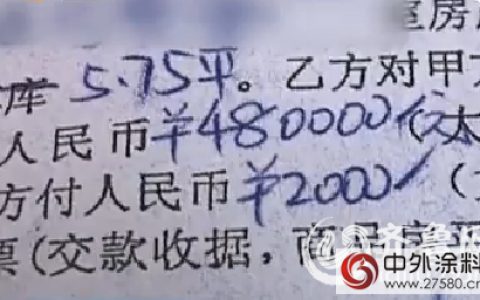 室房
库 5.75平。乙方对甲
人民币¥480000(大
方付人民币¥2000
票(交款收据,商品房
齐鲁网
中外涂料
www.27580.cn